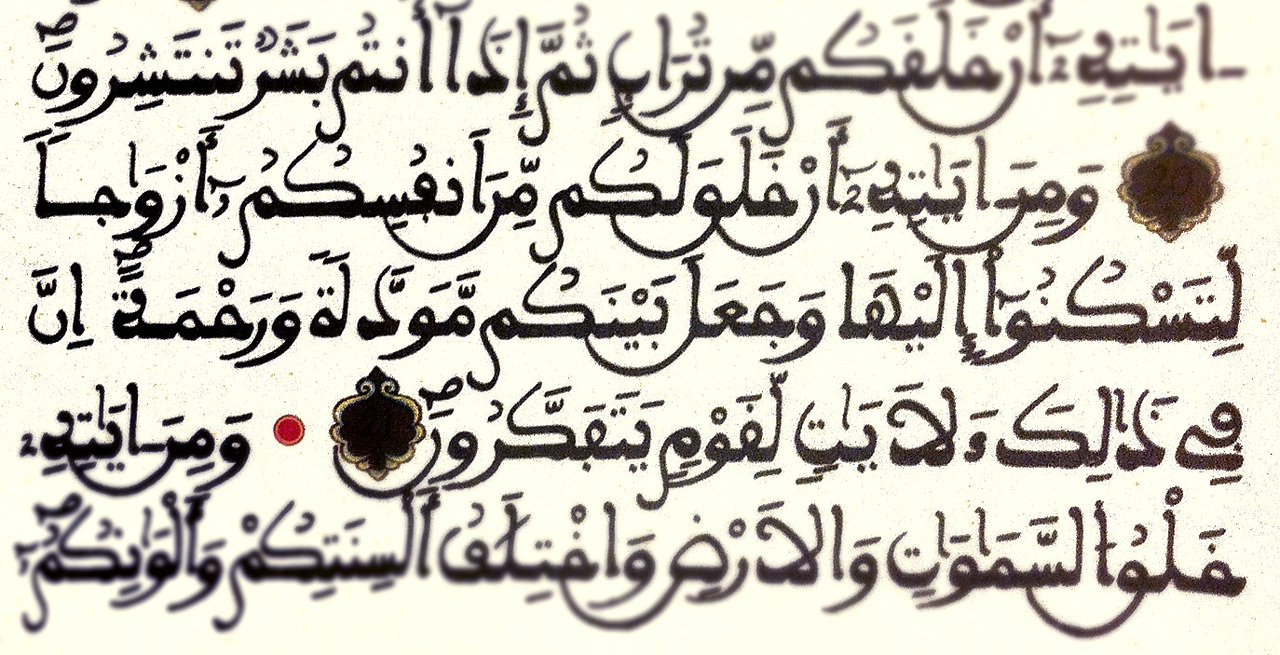 ءَايَٰتِهِۦٓ أَنْ خَلَقَكُم مِّن تُرَابٍ ثُمَّ إِذَآ أَنتُم بَشَرٌ تَنتَشِرُونَ
وَمِنَ ـايَٰتِهِۦٓ أَنْ خَلَقَ لَكُم مِّنَ انفُسِكُمُۥٓ أَزْوَٰجاً
لِّتَسْكُنُوٓا۟ إِلَيْهَا وَجَعَلَ بَيْنَكُم مَّوَدَّةً وَرَحْمَةً اِنَّ
فِے ذَٰلِكَ ءَلَايَٰتٍ لِّقَوْمٍ يَتَفَكَّرُونَ وَمِنَ ـايَٰتِهِۦ
خَلْقُ السَّمَٰوَٰتِ وَالَارْضِ وَاخْتِلَٰفُ أَلْسِنَتِكُمْ وَأَلْوَٰنِكُمُۥٓ